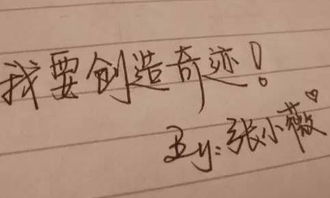 我要创造奇迹！
By: 张小薇♡